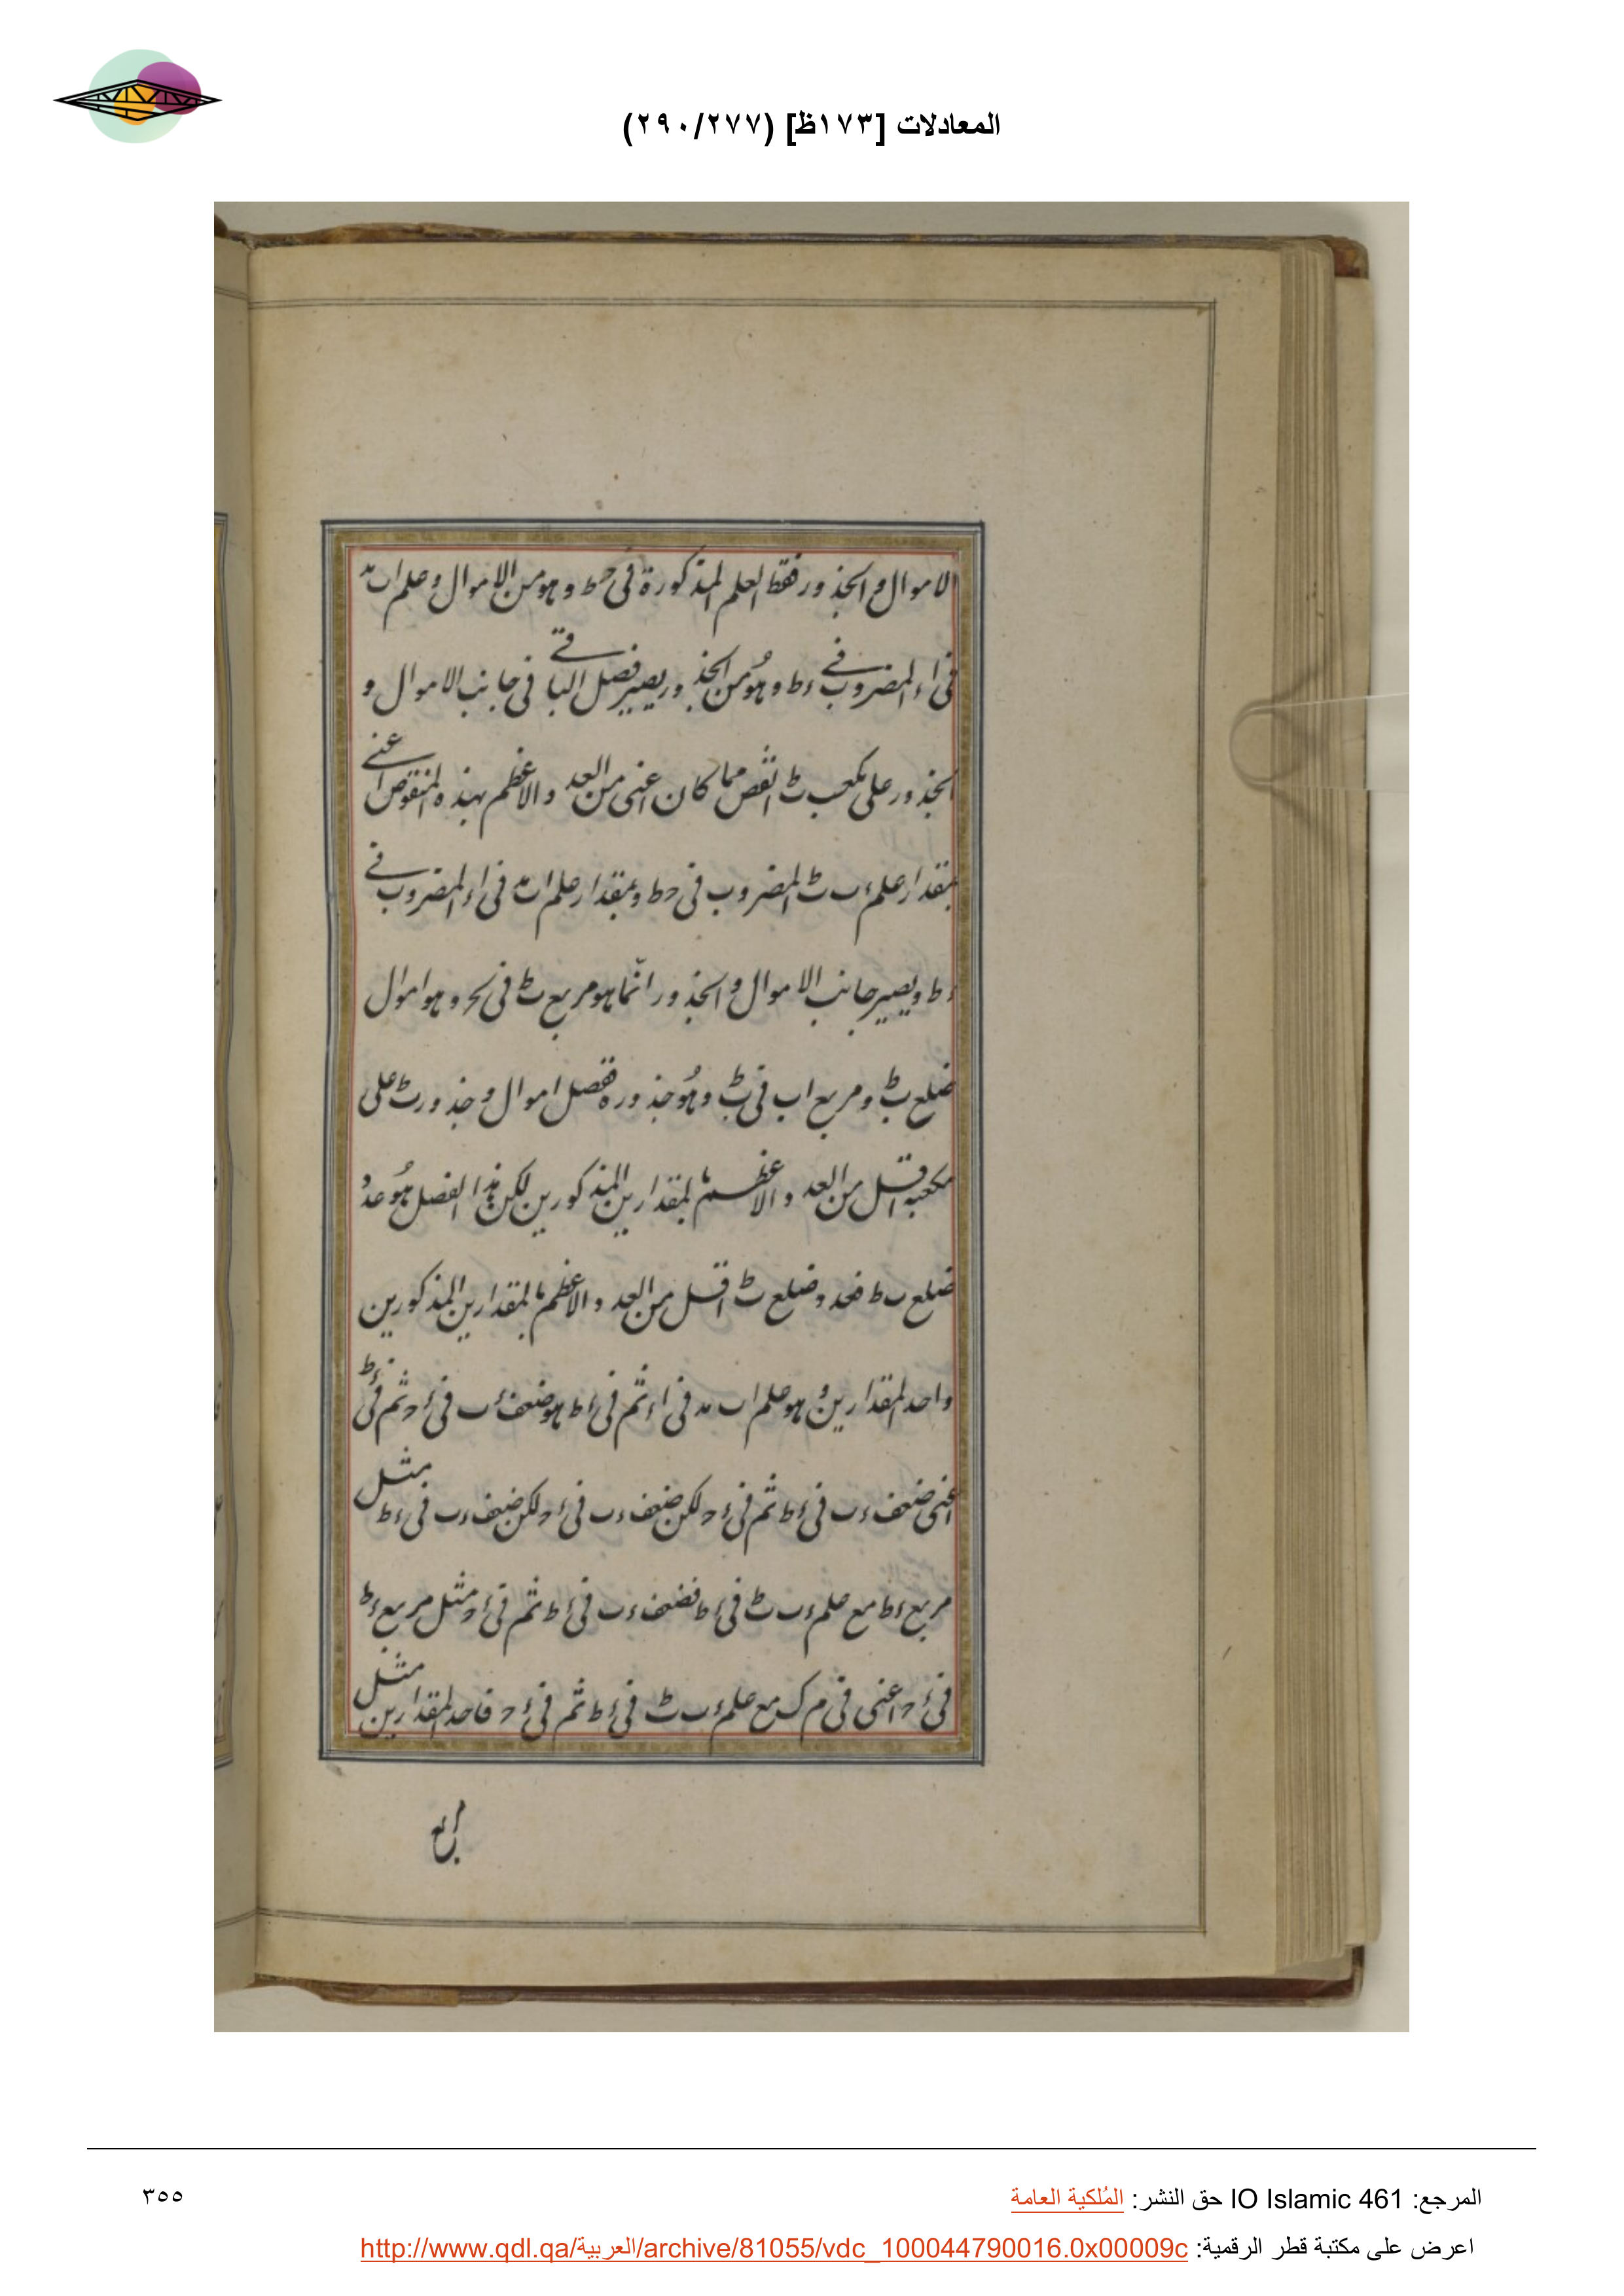 المعادلات [١٧٣ظ] (٢٩٠/٢٧٧)
الاموال والجذور فقط العلم المذكورة فى حط وهو من الاموال وعلم اب مه
فى اء المضروب فى ءط وهو من الجذور يصير فصل الباقى فى جانب الاموال و
الجذور على مكعب ٮط انقص مما كان اعنى من العدد والاعظم بهذه المنقوص اعنى
بمقدار علم ءب ٮط المضروب فى حط وبمقدار علم اب مه فى اء المضروب فى
ءط ويصير جانب الاموال والجذور انما هو مربع ٮط فى لح وهو اموال
ضلع ٮط ومربع اب فى ٮط وهو جذوره ففصل اموال وجذور ٮط على
مكعبه اقل من العدد والاعظم بالمقدارين المذكورين لكن هذا الفصل هو عدد
ضلع ٮط فعدد ضلع ٮط اقل من العدد والاعظم بالمقدارين المذكورين
واحد المقدارين وهو علم اب مه فى اء ثم فى ءط هو ضعف ءب فى ءح ثم فى ءط
اعنى ضعف ءب فى ءط ثم فى ءح لكن ضعف ءب فى ءح لكن ضعف ءب فى ءط مثل
مربع ءط مع علم ءب ٮط فى ءط فضعف ءب فى ءط ثم فى ءح مثل مربع ءط
فى ءح اعنى فى م ك مع علم ءب ٮط فى ءط ثم فى ءح فاحد المقدارين مثل
مربع
المرجع: IO Islamic 461 حق النشر: المُلكية العامة
٣٥٥
اعرض على مكتبة قطر الرقمية: http://www.qdl.qa/العربية/archive/81055/vdc_100044790016.0x00009c